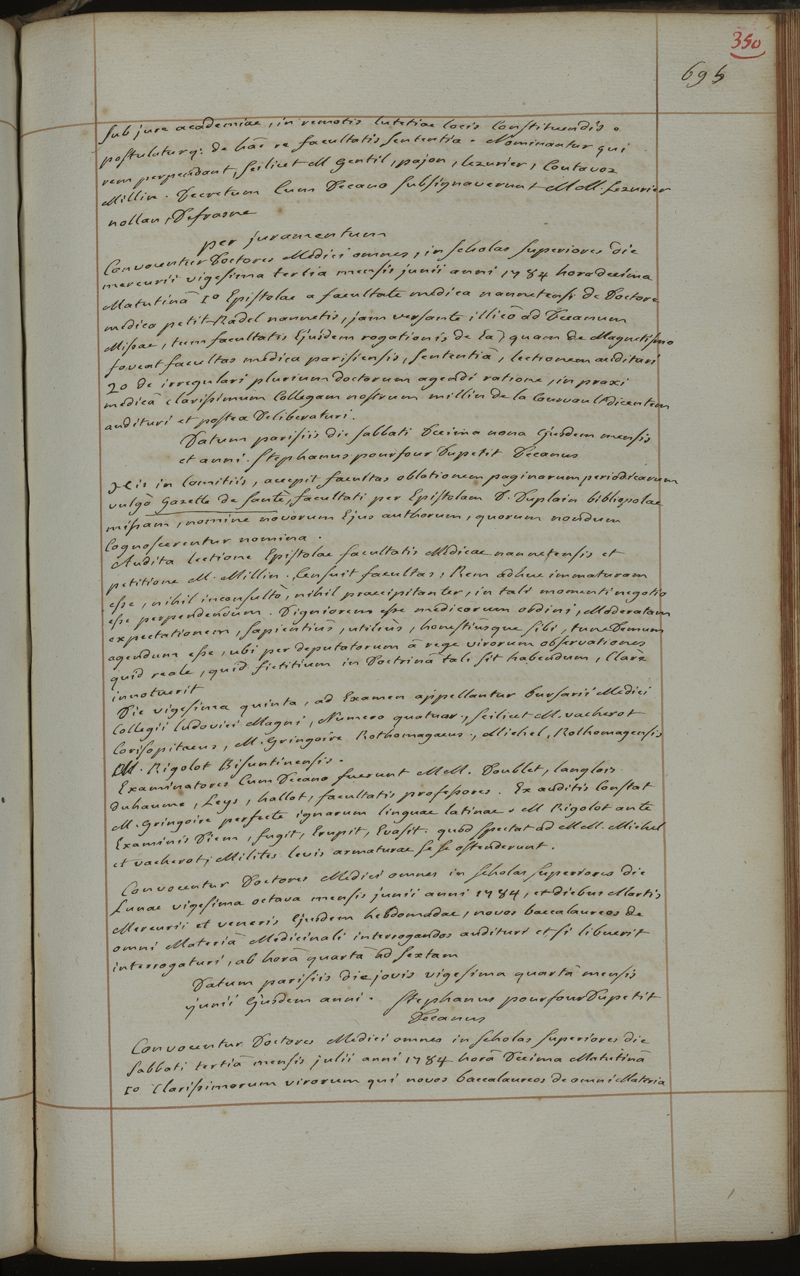 350
695
sub jure academiae, in remotis lutetiae locis constituendis.
postulaturq: de hâc re facultatis sententia. Nominantur qui
rem perpendant, scilicet M gentil, pajon, lezurier, Coutavoz
Millin. Decretum Cum Decano subsignaverunt MM. Lezurier
nollan, Defrasne
per juramentum
Convocentur Doctores Medici omnes, in scholas superiores die
mercurii vigesima tertia mensis junii anni 1784 hora decima
Matutinâ 1o Epistolae a facultate medica nannetensi de Doctore
medico petit-Radel nannetis, jam versante illicò ad Decanum
Missae, tum facultatis Ejusdem rogationis de Eâ quam de Magnetismo
foveat facultas medica parisiensis, sententiâ, lectionem audituri
2o de irregulari plurium doctorum agendi ratione, in praxi
medicâ clarissimum Collegam nostrum millin de la Courvault dicentem
audituri et postea Deliberaturi.
Datum parisiis die sabbati Decima nona Ejusdem mensis
et anni. Stephanus pourfour Dupetit Decanus
His in Comitiis, accepit facultas oblationem paginarum periodicarum
vulgò Gazette de santè, facultati per Epistolam D. Duplain bibliopolae
missam, nomine novorum Ejus authorum, quorum nondum
Cognoscerentur nomina.
Audita lectione Epistolae facultatis Medicae nannetensis et
petitione M. Millin. Censuit facultas, Rem adhuc immaturam
esse, nihil inconsultò, nihil praecipitanter, in tali momenti negotio
esse perpendendum. Digniorem esse medicorum ordini, Moderatam
expectationem, sapientiùs, utiliùs, honestiùsque sibi, tunc Demum
agendum esse, ubi per deputatorum â rege virorum observationes
quid reale, quid fictitium in Doctrinâ tali sit habendum, Clarè
innotuerit
Die vigesima quinta, ad Examen appellantur bursarii Medici
Collegii ludovici Magni, Numero quatuor, scilicet M. vacherot
Corisopitaeus, M. Gringoire Rothomagaeus, Michel, Rothomagensis
M. Rigolot Bisuntinensis.
Examinatores Cum Decano fuerunt MM. Doublet, langlois
duhaume, Leys, hallot, facultatis professores. Ex auditis Constat
M. Gringoire perfecte ignarum linguae latinae. M Rigolot ante
Examinis Diem, fugit, Erupit, Evasit. quòd spectat ad MM. Michel
et vacherot; Milites levis armaturae se se ostenderunt.
Convocentur Doctores Medici omnes in scholas superiores die
Lunae vigesima octava mensis junii anni 1784, et diebus Martis
Mercurii et veneris Ejusdem hebdomadae, novos baccalaureos de
omni Materiâ Medicinali interrogandos audituri et si libuerit
interrogaturi, ab horâ quartâ ad sextam
Datum parisiis die jovis vigesima quartâ mensis
junii Ejusdem anni. Stephanus pourfour Dupetit
Decanus
Convocentur Doctores Medici omnes in scholas superiores die
sabbati tertiâ mensis julii anni 1784 horâ Decima Matutinâ
1o Clarissimorum virorum qui novos baccalaureos de omni Materia